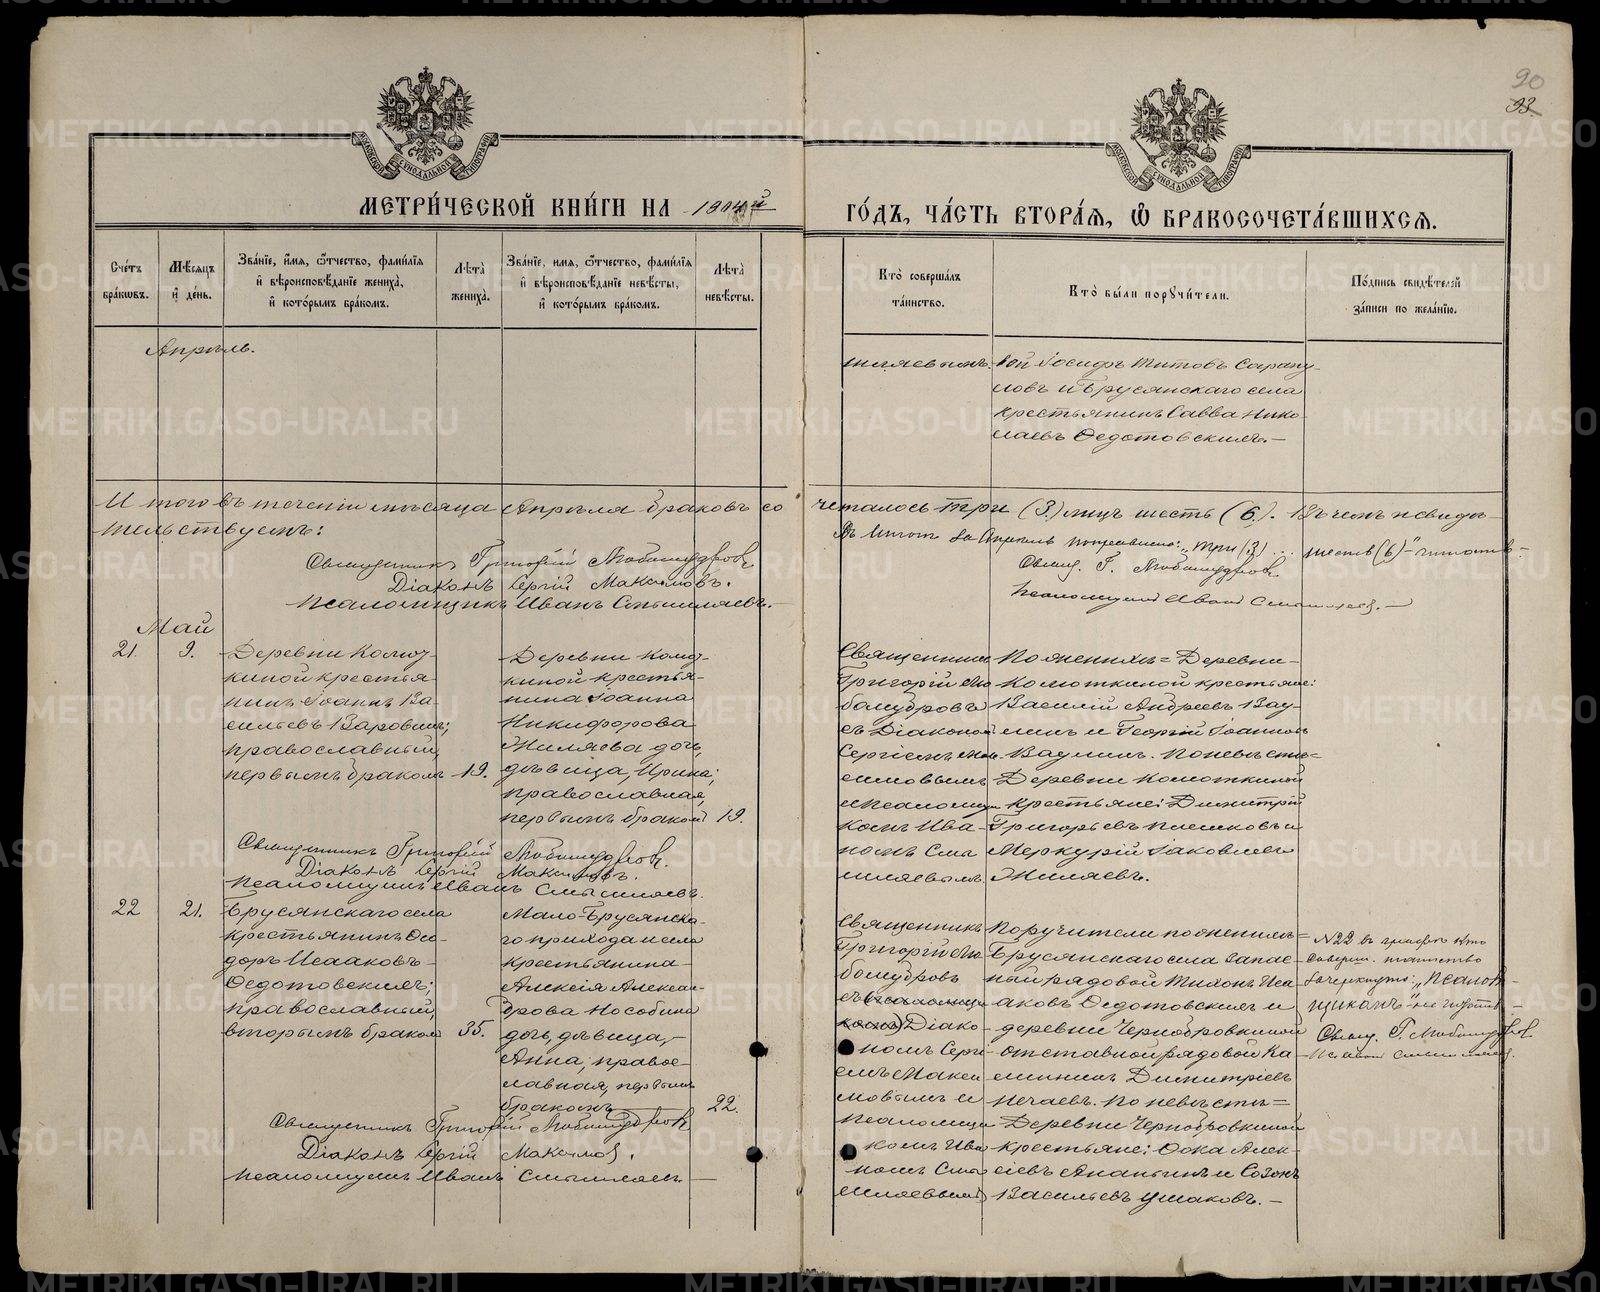 90
93.
МЕТРИ́ЧЕСКОЙ КНИ́ГИ НА 1904й
ГО́ДЪ, ЧА́СТЬ ВТОРА́Я, Ѡ БРАКОСОЧЕТА́ВШИХСЯ.
Сче́тъ бра́ковъ.
Мѣ́сяцъ и҆ де́нь.
Зва́нїе, и҆́мя, ѻ҆́тчество, фами́лїя и҆ вѣроисповѣ́данїе жениха̀, и҆ кото́рымъ бра́комъ.
Лѣ́та жениха̀.
Зва́нїе, имя, ѻ҆́тчество, фами́лїя и҆ вѣроисповѣ́данїе невѣ́сты, и҆ кото́рымъ бра́комъ.
Лѣ́та невѣ́сты.
Кто̀ соверша́лъ та́инство.
Кто̀ бы́ли порꙋчи́тели.
По́дпись свидѣ́телей за́писи по жела́нїю.
Апрѣль.
шляевымъ.
вой Іосифъ Титовъ Сарапу-
ловъ и Брусянскаго села
крестьянинъ Савва Нико
лаевъ Ѳедотовскихъ.—
Итого въ теченіи мѣсяца Апрѣля браковъ со
четалось три (3.) лицъ шесть (6.). Въ чемъ и свидѣ-
тельствуемъ:
Въ итогѣ за Апрѣль поправлено: „три (3) ... шесть (6)“ читать
Священникъ Григорій Любомудровъ
Діаконъ Сергій Максимовъ.
Псаломщикъ Иванъ Смышляевъ.
Свящ. Г. Любомудровъ
Псаломщикъ Иванъ Смышляевъ.—
Май
21.
9.
Деревни Колют-
киной крестья-
нинъ Іоаннъ Ва-
сильевъ Варовинъ;
православный,
первымъ бракомъ
19.
Деревни Колют-
киной крестья-
нина Іоанна
Никифорова
Жиляева дочь,
дѣвица, Ирина;
православная,
первымъ бракомъ
19.
Священникъ
Григорій Лю
бомудровъ
съ Діакономъ
Сергіемъ Мак-
симовымъ
и псаломщи
комъ Ива-
номъ Смы
шляевымъ
По женихѣ= Деревни
Колюткиной крестьяне:
Василій Андреевъ Вау-
линъ и Георгій Іоанновъ
Ваулинъ. По невѣстѣ=
Деревни Колюткиной
крестьяне: Димитрій
Григорьевъ Плешковъ и
Меркурій Іаковлевъ
Жиляевъ.
Священникъ Григорій Любомудровъ.
Діаконъ Сергій Максимовъ.
Псаломщикъ Иванъ Смышляевъ.
22
21.
Брусянскаго села
крестьянинъ Ѳео-
доръ Исааковъ
Ѳедотовскихъ;
православный,
вторымъ бракомъ
35.
Мало-Брусянска-
го прихода и села
крестьянина
Алексія Алексан-
дрова Нособина
дочь, дѣвица,
Анна, правос-
лавная, первымъ
бракомъ
22.
Священникъ
Григорій Лю
бомудровъ
съ (псаломщи
комъ) Діако-
номъ Серги-
емъ Макси
мовымъ и
псаломщи
комъ Ива
номъ Смы
шляевымъ
Поручители по женихѣ=
Брусянскаго села запас-
ной рядовой Тихонъ Иса
аковъ Ѳедотовскихъ и
деревни Чернобровкиной
отставной рядовой Ка-
лининъ Димитріевъ
Нечаевъ. По невѣстѣ=
Деревни Чернобровкиной
крестьяне: Фока Алек-
сіевъ Ананьинъ и Созонъ
Васильевъ Ушаковъ.—
№22 въ графѣ кто
соверш. таинство
зачеркнуто: „псалом-
щикомъ“ не читать—
Свящ. Г. Любомудровъ
Священникъ Григорій Любомудровъ
Діаконъ Сергій Максимовъ.
Псаломщикъ Иванъ Смышляевъ.—
METRIKI.GASO-URAL.RU